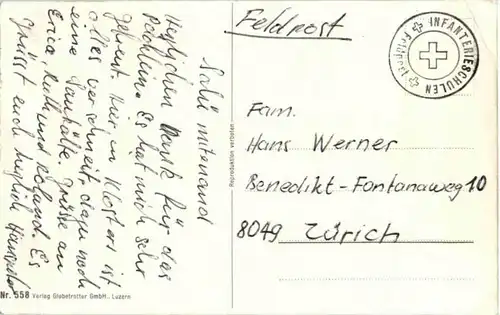 Salü mitenand
Herzlichen Dank für das
Päckli. Es hat mich sehr
gefreut. Hier in Klosters ist
alles verschneit, dazu noch
eine Saukälte. Grüsse an
Erica, Ruth und Roland. Es
grüsst euch herzlich Hanspeter
Nr. 558 Verlag Globetrotter GmbH., Luzern
Reproduktion verboten
Feldpost
INFANTERIESCHULEN
Feldpost
Fam.
Hans Werner
Benedikt-Fontanaweg 10
8049 Zürich